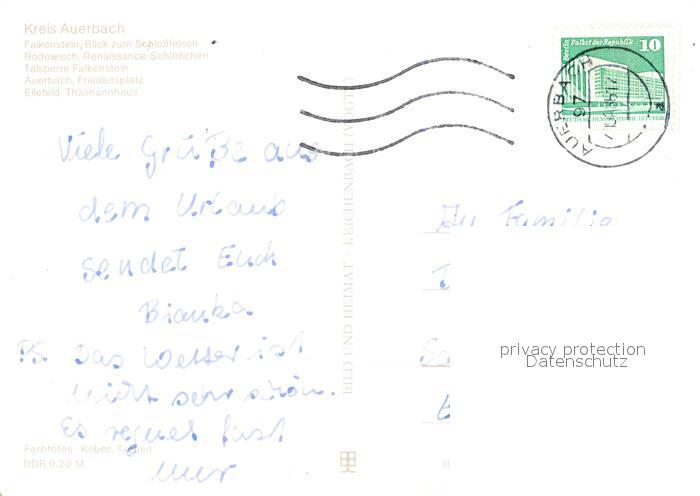 Kreis Auerbach
Falkenstein, Blick zum Schloßfelsen
Rodewisch, Renaissance-Schlößchen
Talsperre Falkenstein
Auerbach, Friedensplatz
Ellefeld, Thälmannhaus
Berlin Palast der Republik 10
AUERBACH
97
Viele Grüße aus
dem Urlaub
sendet Euch
Bianka
PS. Das Wetter ist
nicht sehr schön.
Es regnet fast
nur
BILD UND HEIMAT · REICHENBACH (VOGTL)
An Familie
privacy protection
Datenschutz
Farbfotos: Kober, Treuen
DDR 0,20 M